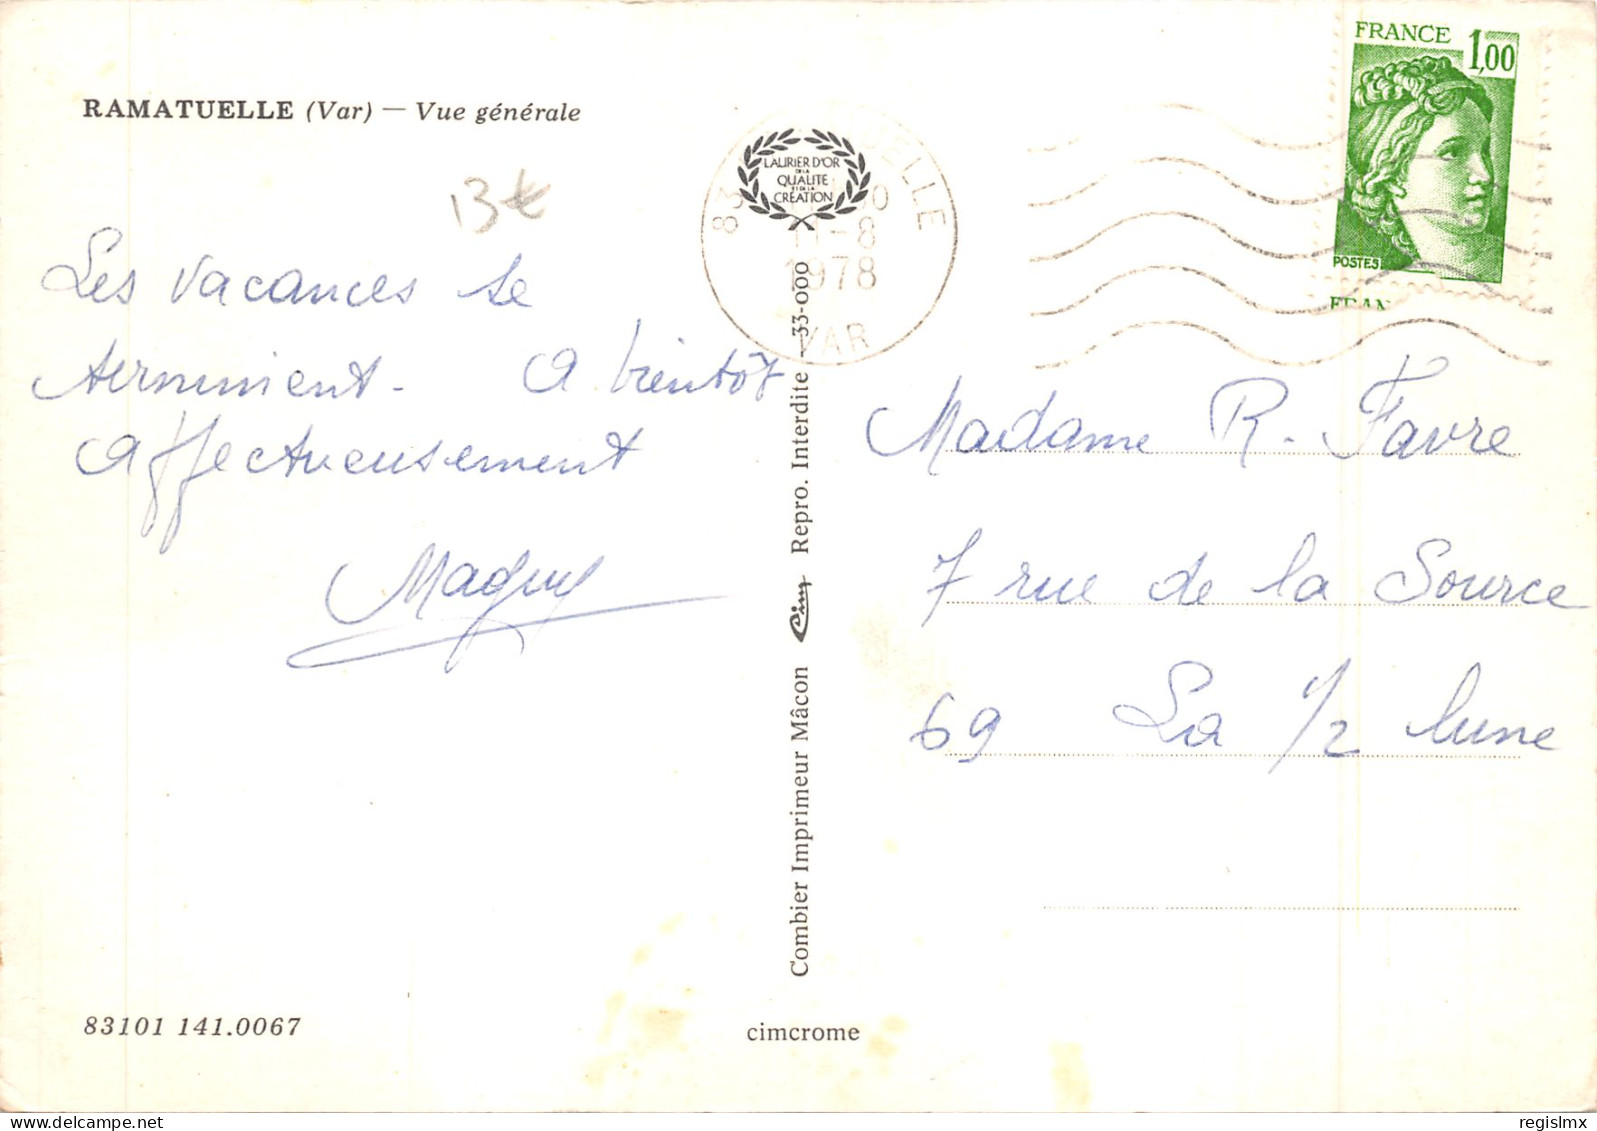 RAMATUELLE (Var) — Vue générale
13 €
Les vacances se
terminent. A bientôt
Affectueusement
Maguy
83101 141.0067
LAURIER D'OR
DE LA
QUALITE
ET DE LA
CREATION
11-8
1978
VAR
Combier Imprimeur Mâcon Cim Repro. Interdite 33-000
cimcrome
FRANCE 1,00
POSTES
FRAN
Madame R. Favre
7 rue de la Source
69 La 1/2 lune
regislmx